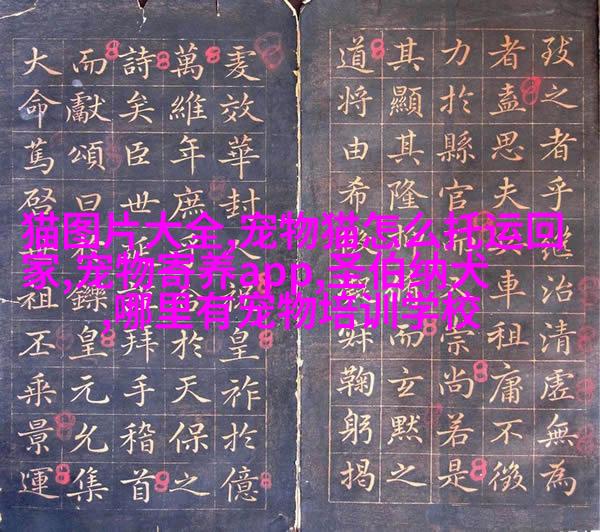 之者乎治清虛無為
者盍思夫車租庸不徵
力於縣官崇尚若是
其顯其隆而玄默之
道將由希鞠躬揭
效華封皇祚於億
萬維年庶於天保之
詩矣臣世拜手稽首
而獻頌曰鑠皇元允集
大命篤啓祖丕乘景運
猫图片大全,宠物猫怎么托运回
家,宠物寄养app,圣伯纳犬
,哪里有宠物培训学校